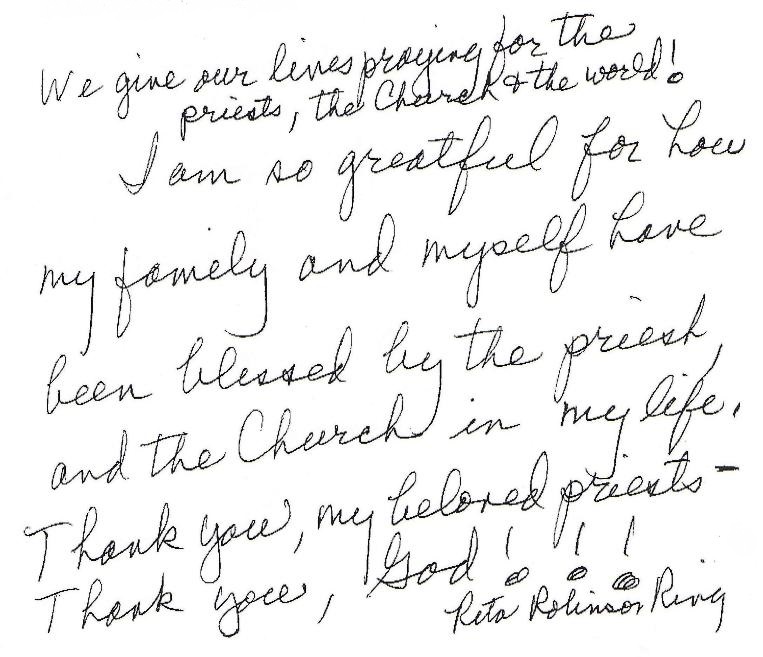 We give our lives praying for the
priests, the Church & the world!
I am so greatful for how
my family and myself have
been blessed by the priests,
and the Church in my life.
Thank you, my beloved priests -
Thank you, God! ! !
Rita Robinson Ring